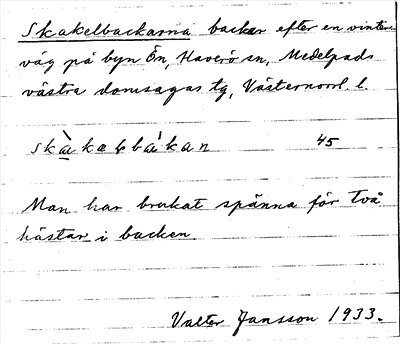 Skakelbackarna backar efter en vinter-
väg på byn Ön, Haverö sn, Medelpads
västra domsagas tg, Västernorrl. l.
skàkæḷbákan 45
Man har brukat spänna för två
hästar i backen
Valter Jansson 1933.